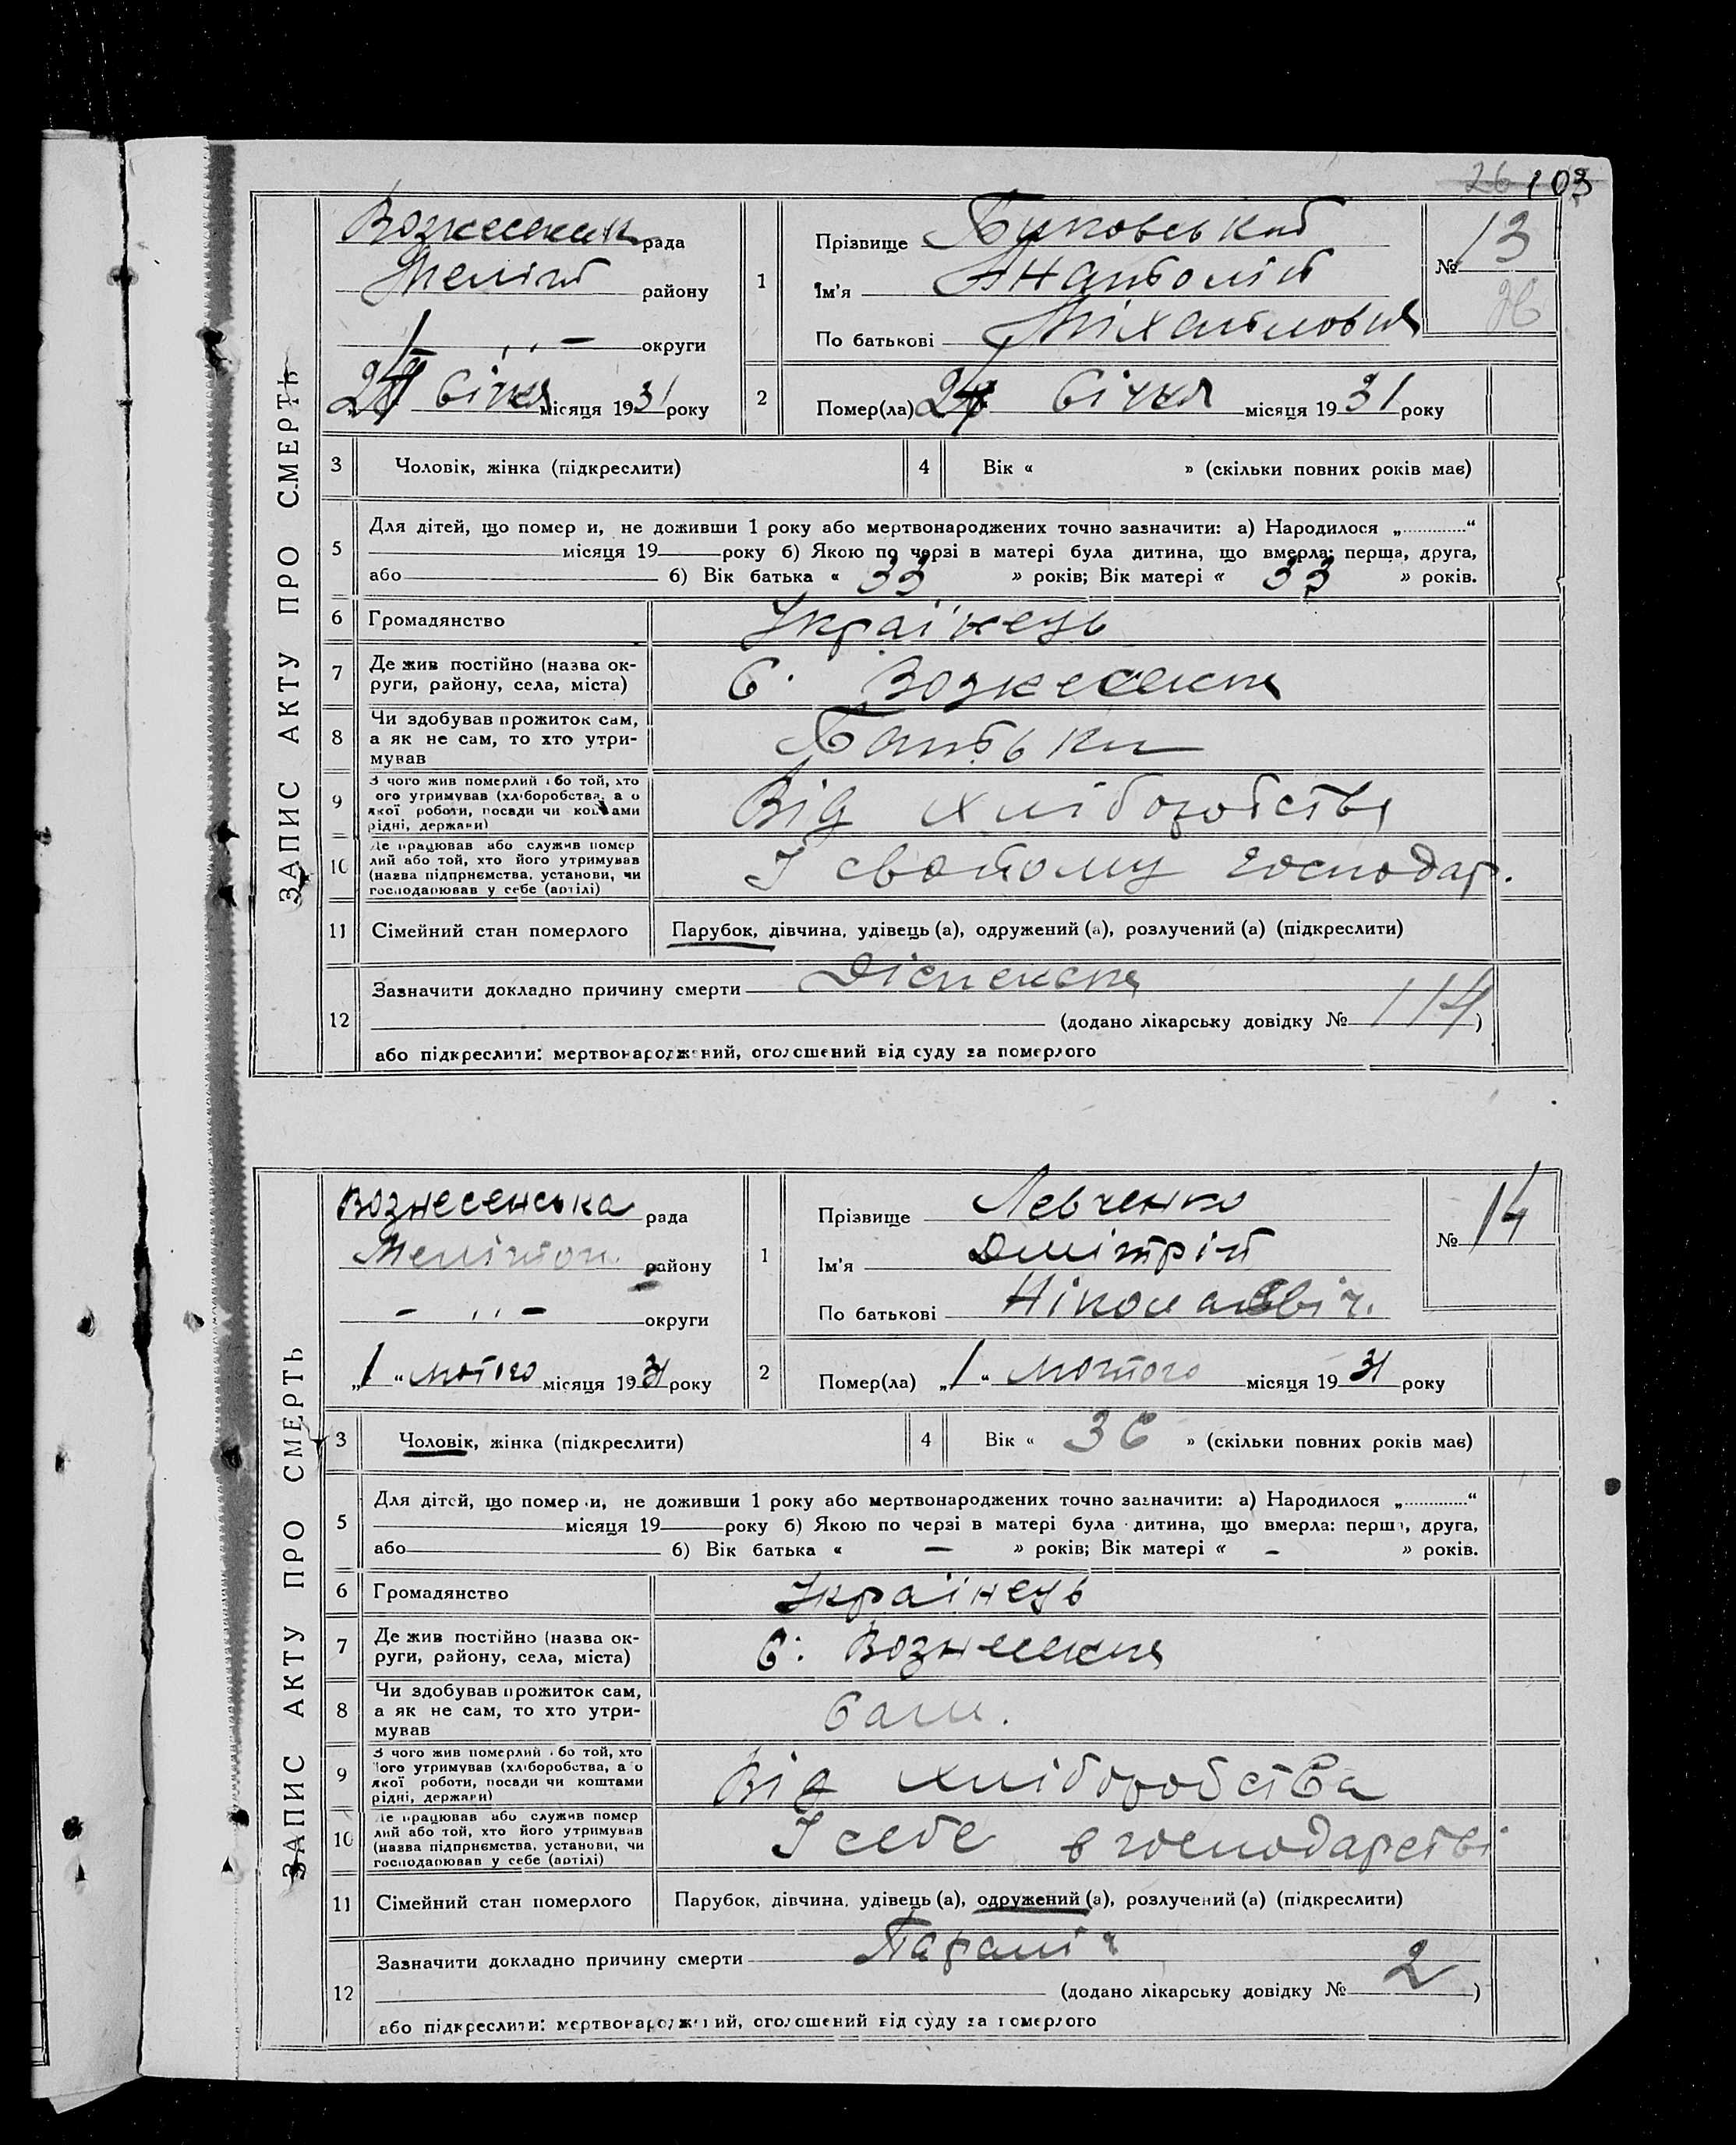 26 103
ЗАПИС АКТУ ПРО СМЕРТЬ
рада
району
- ,, - округи
Січня місяця 1931 року
1
Прізвище Буковський
Ім'я Анатолій
По батькові Міхайлович
№ 13
2
Помер(ла) Січня місяця 1931 року
3 Чоловік, жінка (підкреслити)
4 Вік « » (скільки повних років має)
5
Для дітей, що помер и, не доживши 1 року або мертвонароджених точно зазначити: а) Народилося „.............“
місяця 19 року б) Якою по черзі в матері була дитина, що вмерла: перша, друга,
або б) Вік батька « 33 » років; Вік матері « 33 » років.
6 Громадянство Українець
7 Де жив постійно (назва ок-
руги, району, села, міста) С. Вознесенка
8 Чи здобував прожиток сам,
а як не сам, то хто утри-
мував Батьки
9 З чого жив померлий або той, хто
його утримував (хліборобства, а о
якої роботи, посади чи коштами
рідні, держави) Від хліборобства
10 Де працював або служив помер
лий або той, хто його утримував
(назва підприємства, установи, чи
господарював у себе (артілі) У свойому господар.
11 Сімейний стан померлого Парубок, дівчина, удівець (а), одружений (а), розлучений (а) (підкреслити)
12
Зазначити докладно причину смерти Діспенсія
(додано лікарську довідку № 114)
або підкреслити: мертвонароджений, оголошений від суду за померлого
ЗАПИС АКТУ ПРО СМЕРТЬ
Вознесенська рада
Мелітоп. району
- ,, - округи
„1“ лютого місяця 1931 року
1
Прізвище Левченко
Ім'я Дмітрій
По батькові Ніколаєвіч.
№ 14
2
Помер(ла) „1“ лютого місяця 1931 року
3 Чоловік, жінка (підкреслити)
4 Вік « 36 » (скільки повних років має)
5
Для дітей, що помер и, не доживши 1 року або мертвонароджених точно зазначити: а) Народилося „.............“
місяця 19 року б) Якою по черзі в матері була дитина, що вмерла: перша, друга,
або б) Вік батька « - » років; Вік матері « - » років.
6 Громадянство Українець
7 Де жив постійно (назва ок-
руги, району, села, міста) С. Вознесенка
8 Чи здобував прожиток сам,
а як не сам, то хто утри-
мував Сам.
9 З чого жив померлий або той, хто
його утримував (хліборобства, а о
якої роботи, посади чи коштами
рідні, держави) Від хліборобства
10 Де працював або служив помер
лий або той, хто його утримував
(назва підприємства, установи, чи
господарював у себе (артілі) У себе в господарстві
11 Сімейний стан померлого Парубок, дівчина, удівець (а), одружений (а), розлучений (а) (підкреслити)
12
Зазначити докладно причину смерти Параліч
(додано лікарську довідку № 2)
або підкреслити: мертвонароджений, оголошений від суду за померлого